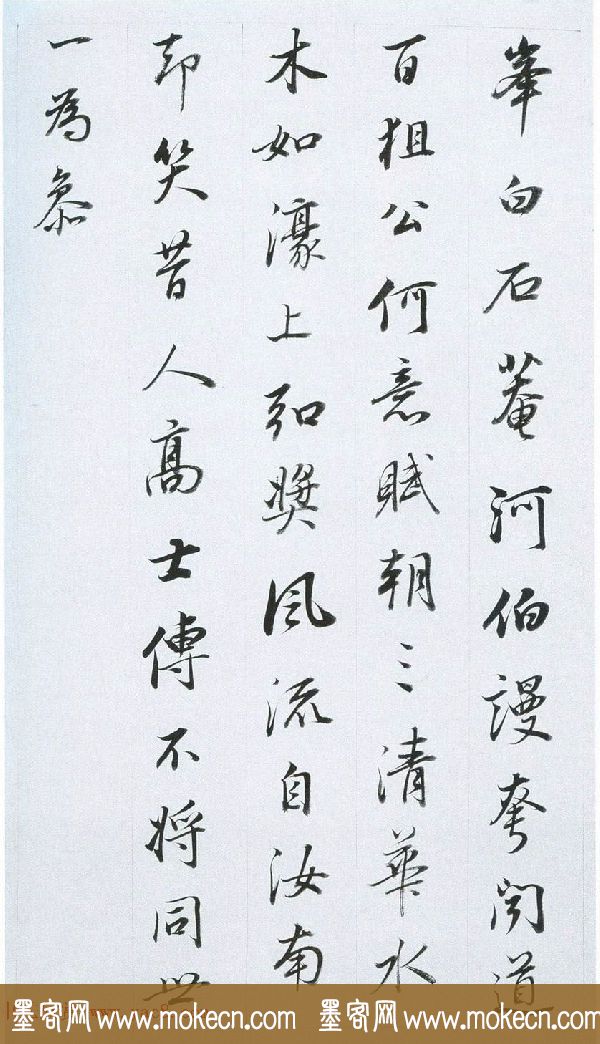 峯白石菴河伯謾夸聞道
百狙公何意賦朝三清華水
木如濠上弘獎風流自汝南
却笑昔人高士傳不將同世
一為參
墨客网 www.mokecn.com 墨客网 www.mokecn.com